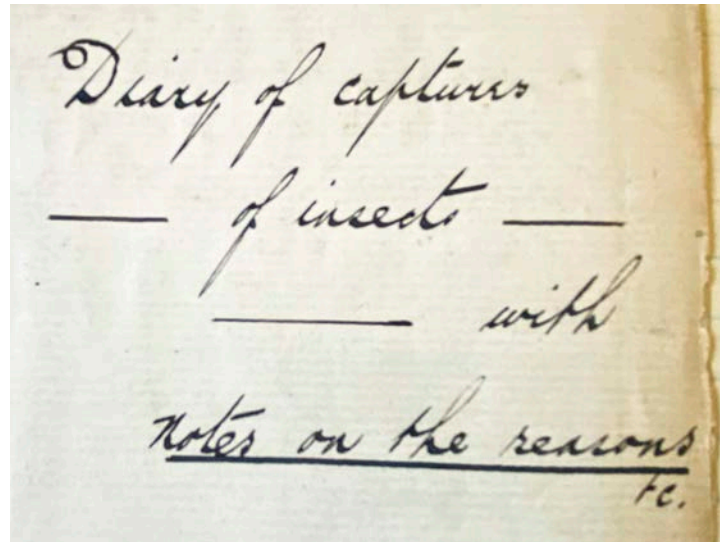 Diary of captures
— of insects —
— with
Notes on the reasons
&c.